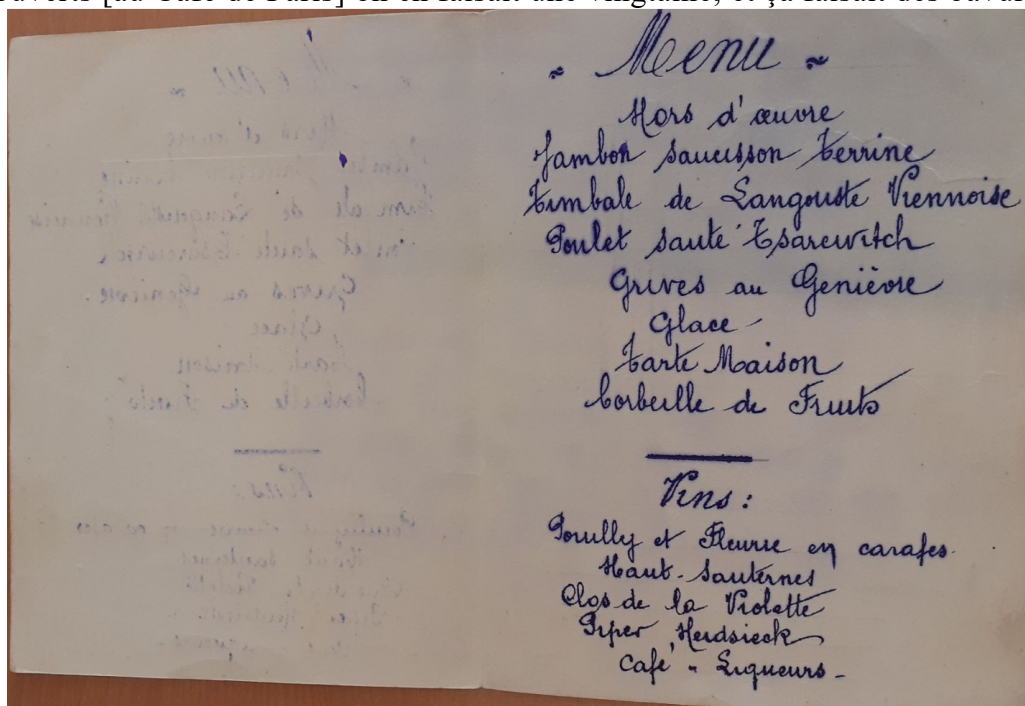 couverts [au Café de Paris] on en faisait une vingtaine, et ça faisait des
~ Menu ~
Hors d'œuvre
Jambon saucisson Terrine
Timbale de Langouste Viennoise
Poulet sauté Tsarewitch
Grives au Genièvre
Glace -
Tarte Maison
Corbeille de Fruits
Vins :
Pouilly et Fleurie en carafes.
Haut-Sauternes
Clos de la Violette
Piper Heidsieck
Café - Liqueurs -